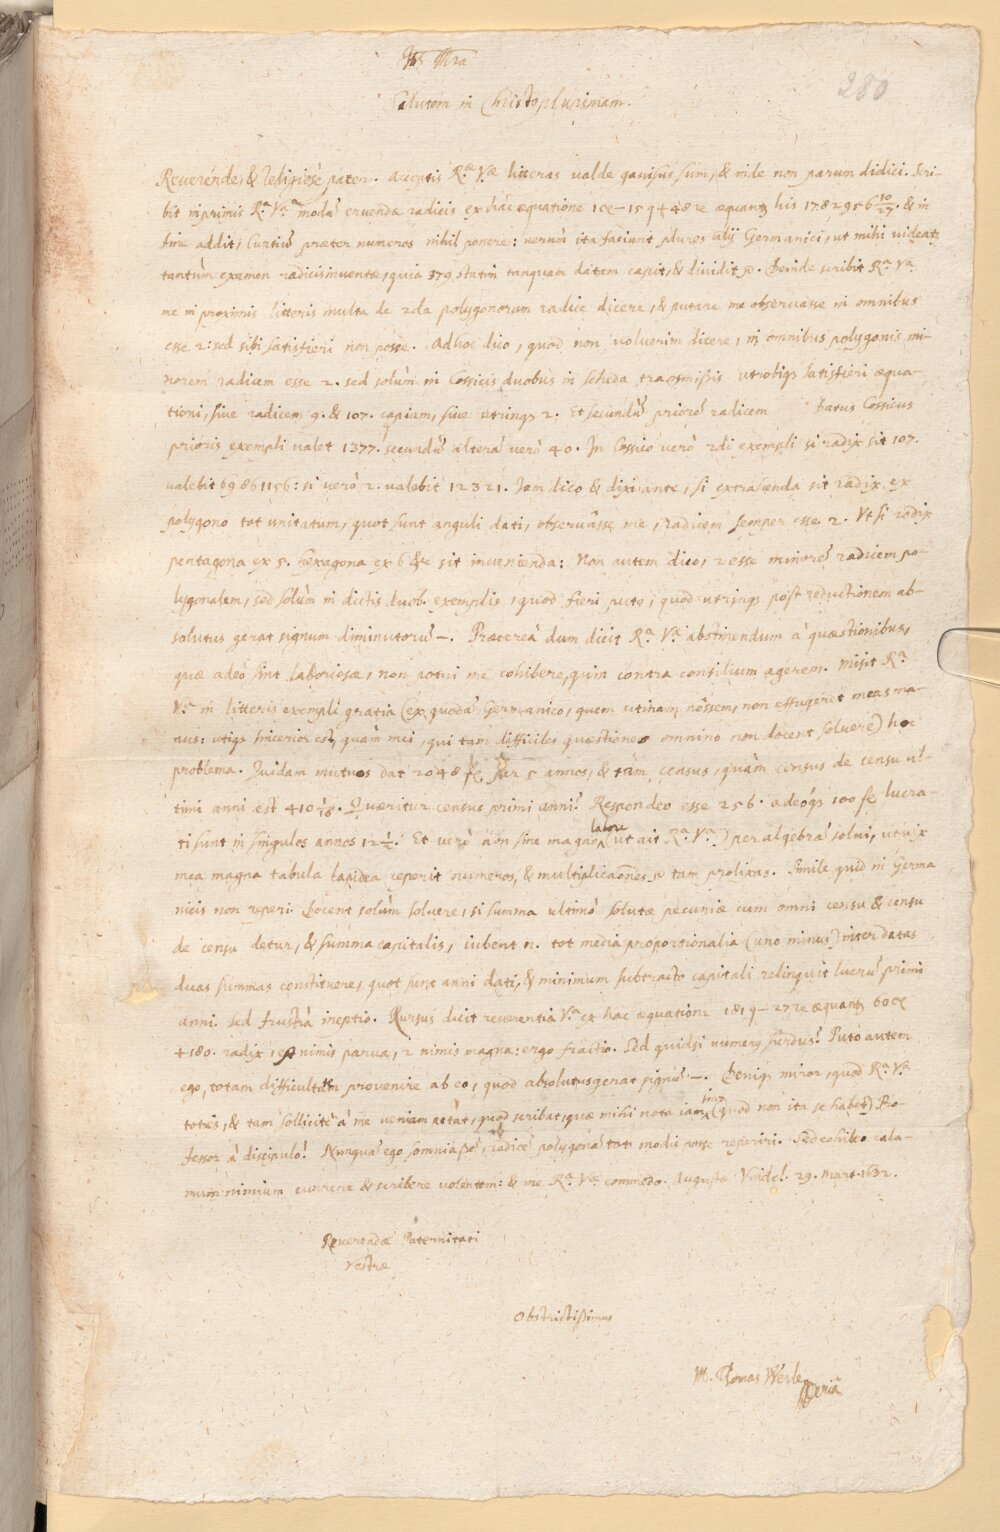 280
Salutem in Christo plurimam.
Reverende, & Religiose pater. Acceptis Rᵃᵉ Vᵃᵉ litteras valde gavisus sum, & inde non parum didici. Scri-
bit inprimis Rᵃ Vᵃ modũ eruendæ radicis ex hac æquatione 1ce – 15q + 48re æquant his 1782956 10/27. & in
fine addit, Curtiũ præter numeros nihil ponere: verùm ita faciunt plures alij Germanici, ut mihi videatʒ
tantùm examen radicis inventæ, quia 379 statim tanquam datam capit, & dividit p. Deinde scribit Rᵃ Vᵃ
me in proximis litteris multa de 2da polygonorum radice dicere, & putare me observasse in omnibus
esse 2: sed sibi satisfieri non posse. Ad hoc dico, quod non voluerim dicere, in omnibus polygonis mi-
norem radicem esse 2. sed solùm in Cossicis duobus in scheda transmissis utrobiqʒ satisfieri æqua-
tioni, sive radicem 9. & 107. capiam, sive utrinqʒ 2. Et secundũ priorẽ radicem Datus Cossicus
prioris exempli valet 1377. secundũ alterã verò 40. In Cossico verò 2di exempli si radix sit 107.
valebit 69861156: si verò 2. valebit 12321. Iam dico & dixi ante, si extrahenda sit radix ex
polygono tot unitatum, quot sunt anguli dati, observâsse me, radicem semper esse 2. Ut si radix
pentagona ex 5. hexagona ex 6 &c sit invenienda: Non autem dico, 2 esse minorẽ radicem po-
lygonalem, sed solùm in dictis duob. exemplis, quod fieri puto, quod utrinqʒ post reductionem ab-
solutus gerat signum diminutorũ –. Præterea dum dicit Rᵃ Vᵃ abstinendum à quæstionibus,
quæ adeò sint laboriosæ, non potui me cohibere, quin contra consilium agerem. Misit Rᵃ
Vᵃ in litteris exempli gratia (ex quodã Germanico, quem utinam nôssem, non effugeret meas ma-
nus: utiqʒ sincerior est, quàm mei, qui tam difficiles quæstiones omnino non docent solvere) hoc
problema. Quidam mutuos dat 2048 fl. per 5 annos, & tam census, quàm census de censu ul-
timi anni est 410 1/18. Quæritur census primi anni? Respondeo esse 256. adeóqʒ 100 fl. lucra-
ti sunt in singulos annos 12 1/2. Et verò non sine magno labore (ut ait Rᵃ Vᵃ) per algebrã solvi, ut vix
mea magna tabula lapidea ceperit numeros, & multiplicaõnes tam prolixas. Simile quid in Germa
nicis non reperi. Docent solùm solvere, si summa ultimò solutæ pecuniæ cum omni censu & censu
de censu detur, & summa capitalis, iubent n. tot media proportionalia (uno minus) inter datas
duas summas constituere, quot sunt anni dati, & minimum subtracto capitali relinquit lucrũ primi
anni. sed frustrà ineptio. Rursus dicit reverentia Vᵃ ex hac æquatione 181q – 27re æquant 60ce
+ 180. radix 1 est nimis parva, 2 nimis magna: ergo fractio. Sed quid si numerʒ surdus? Puto autem
ego, totam difficultatem provenire ab eo, quod absolutus gerat signũ –. Deniqʒ miror, quod Rᵃ Vᵃ
toties, & tam sollicitè à me veniam petat, quod scribat, quæ mihi nota iam sint (quod non ita se habet) Pro-
fessor à discipulo! Nunquã ego somniassẽ, radicẽ polygonã tot modis posse reperiri. Sed cohibeo cala-
mum nimium currere & scribere volentem: & me Rᵃᵉ Vᵃᵉ commendo. Augustæ Vindel. 29. Mart. 1632.
Reverendæ Paternitati
Vestræ
Obstrictissimus
M. Thomas Werle